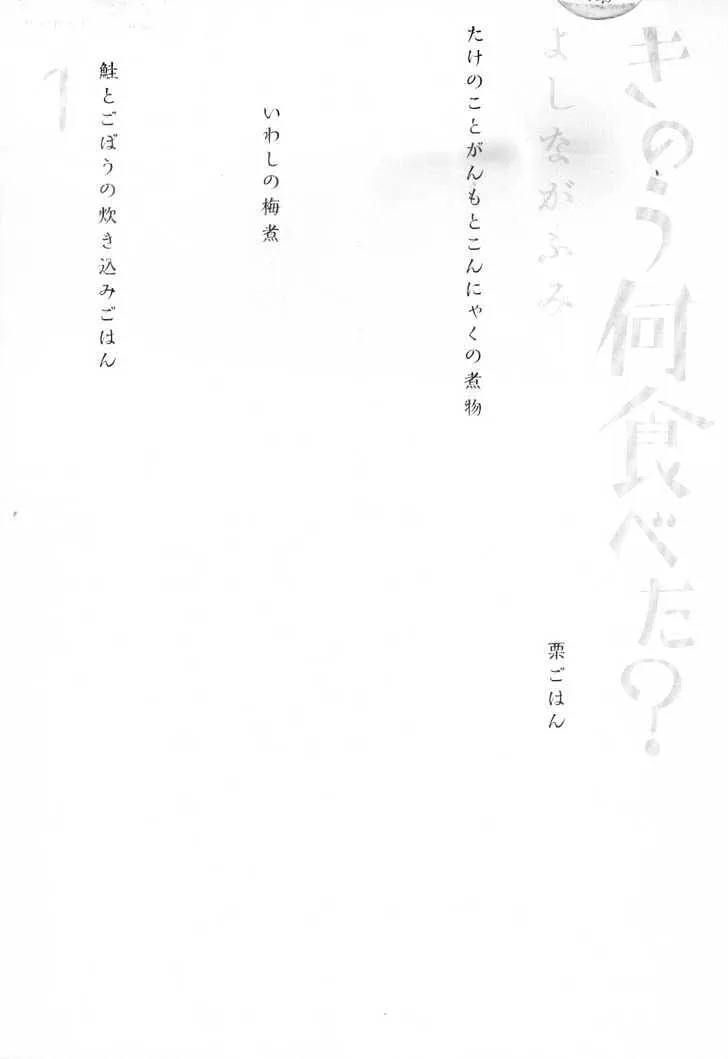 きのう何食べた?
よしながふみ
栗ごはん
たけのことがんもとこんにゃくの煮物
いわしの梅煮
鮭とごぼうの炊き込みごはん
1